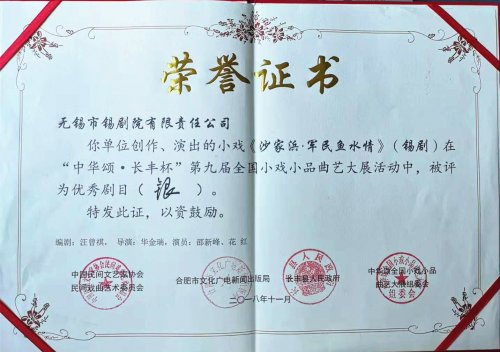 荣誉证书
无锡市锡剧院有限责任公司
你单位创作、演出的小戏《沙家浜·军民鱼水情》（锡剧）在
“中华颂·长丰杯”第九届全国小戏小品曲艺大展活动中，被评
为优秀剧目（银）。
特发此证，以资鼓励。
编剧：汪曾祺， 导演：华金瑞，演员：邵新峰、花红
中国民间文艺家协会 合肥市文化广电新闻出版局 长丰县人民政府 中华颂全国小戏小品
民间戏曲艺术委员会 曲艺大展组委会
二〇一八年十一月